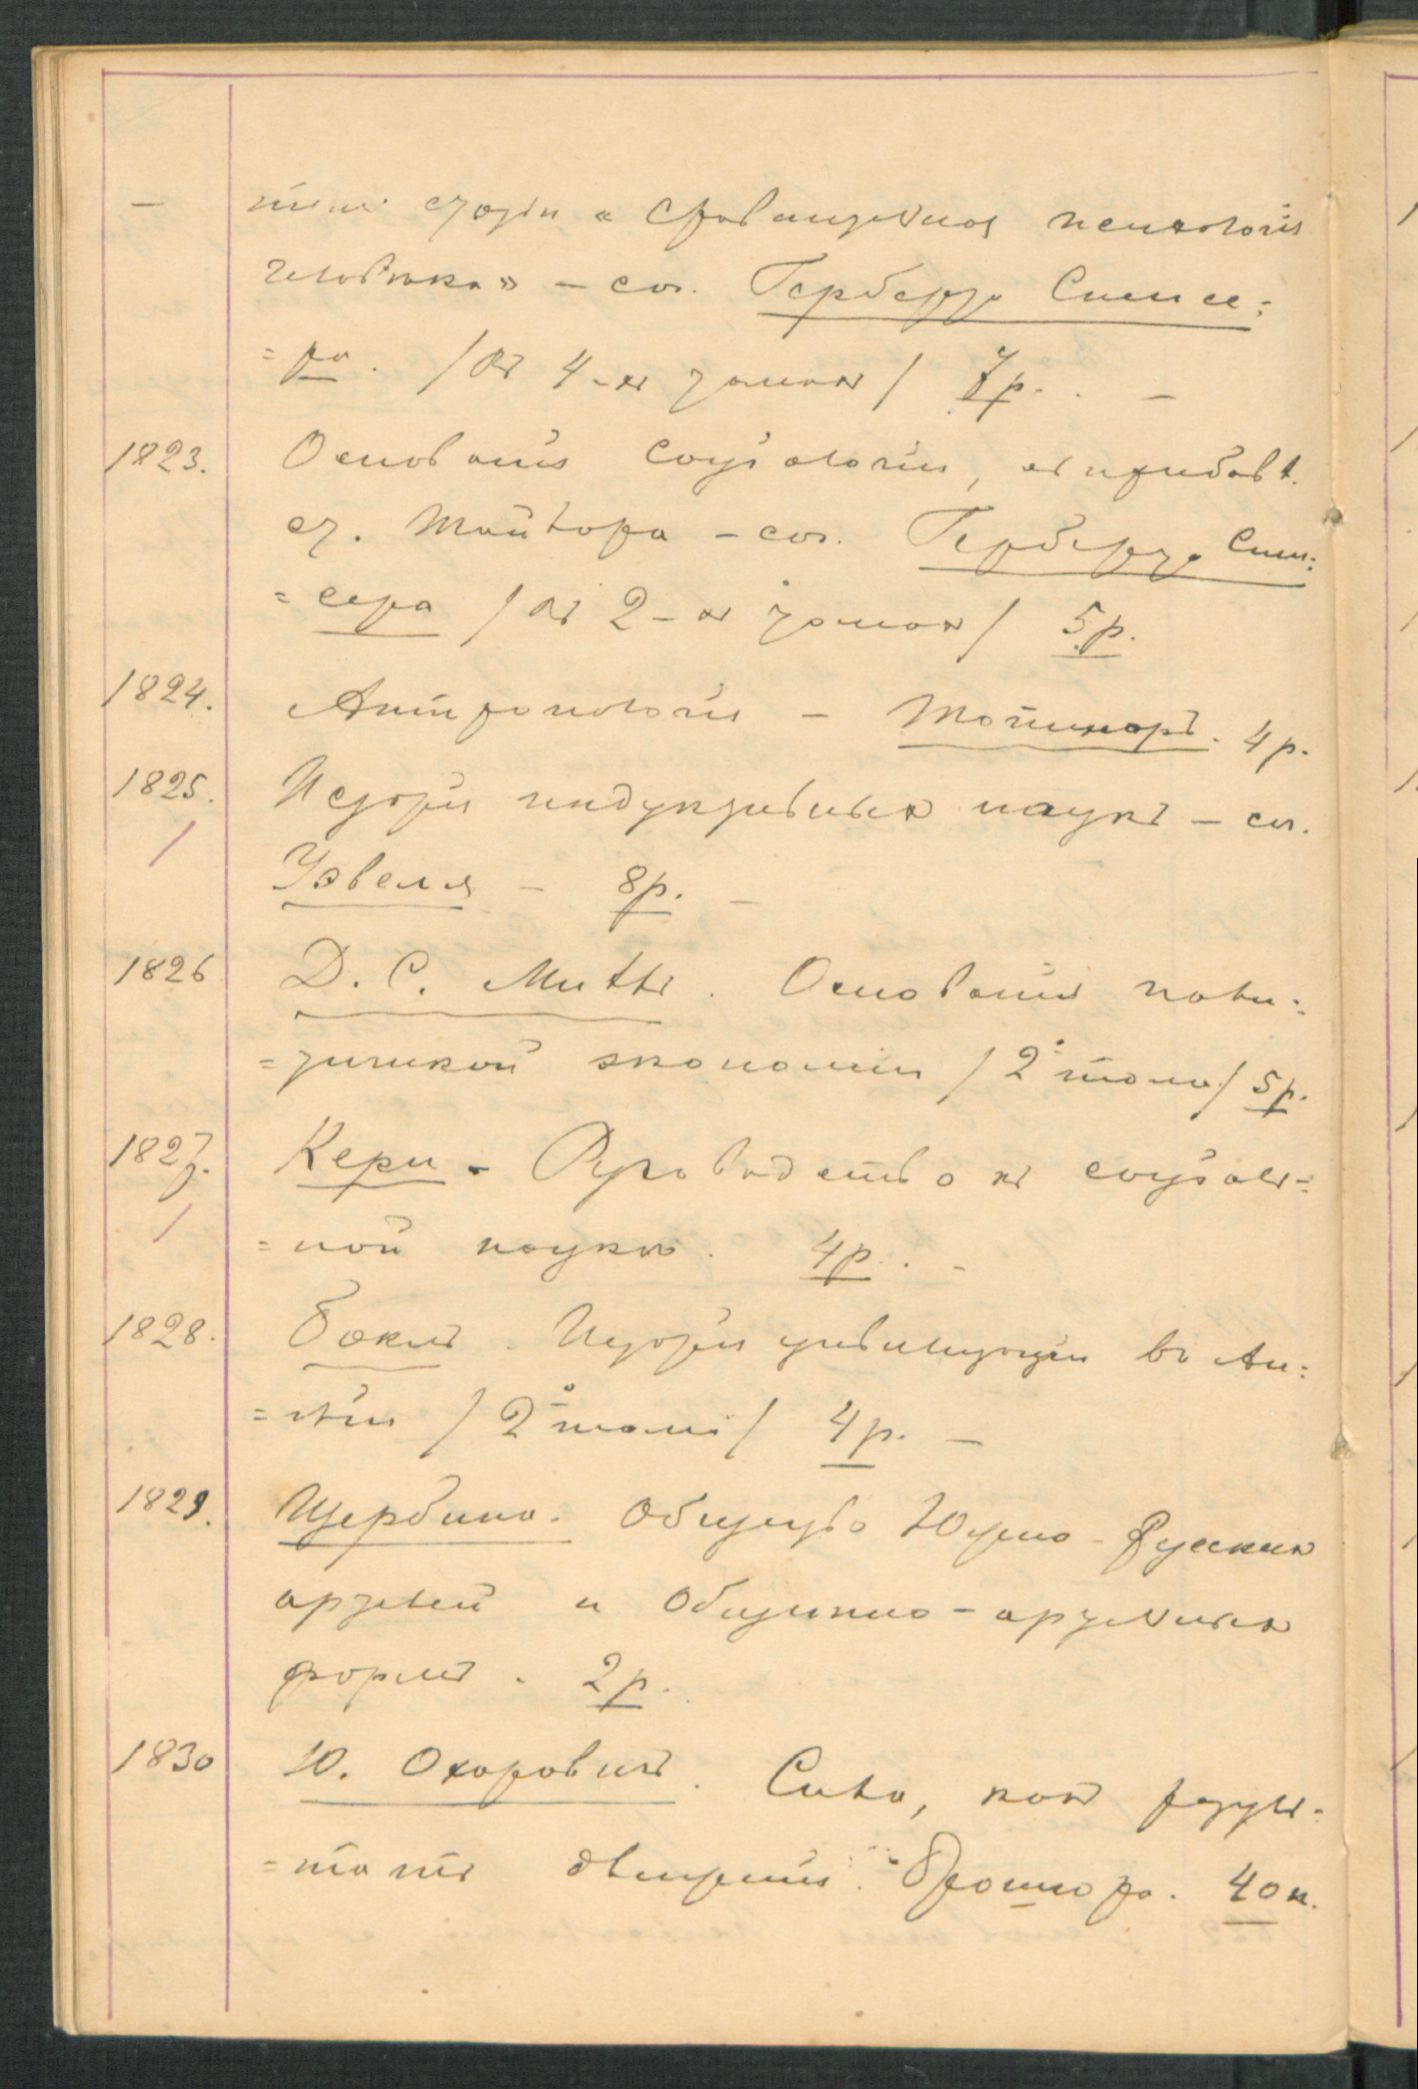 — ніемъ статьи «Сравнительная психологія
человѣка» – соч. Герберта Спенсе=
=ра. /въ 4-хъ томахъ/ 7р. . —
1823. Основанія соціологіи, съ прибавл.
ст. Тайлора – соч. Герберта Спен=
=сера /въ 2-хъ томахъ/ 5р.
1824. Антропологія – Топинаръ. 4р.
1825. Исторія индуктивныхъ наукъ – соч.
Уэвеля – 8р. —
1826 Д. С. Милль. Основанія поли=
=тической экономіи /2 тома/ 5р.
1827. Кери. Руководство къ соціаль=
=ной наукѣ. 4р. . –
1828. Бокль. Исторія цивилизаціи въ Ан=
=гліи /2 тома/ 4р. —
1829. Щербина. Общество Южно-Русскихъ
артелей и Общинно-артельныхъ
формъ. 2р.
1830 Ю. Охоровичъ. Сила, какъ резуль=
=татъ движенія. Брошюра. 40к.